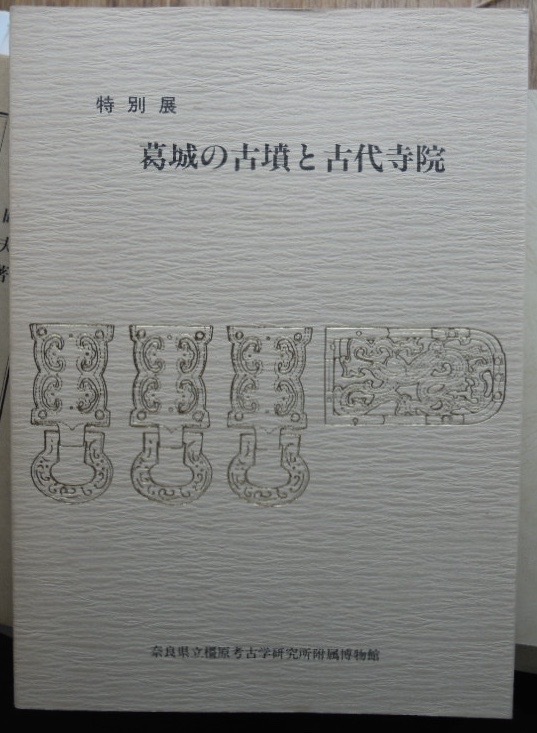 特別展
葛城の古墳と古代寺院
奈良県立橿原考古学研究所附属博物館